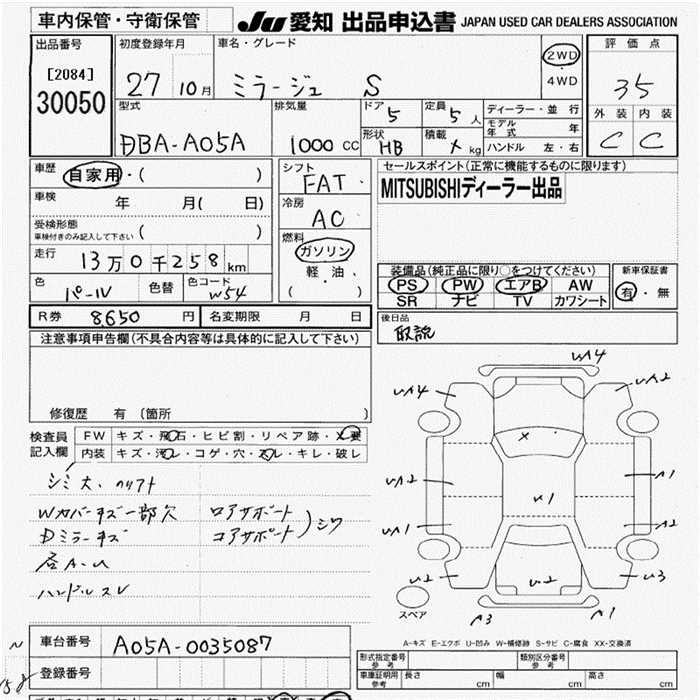 車内保管・守衛保管
JU 愛知 出品申込書 JAPAN USED CAR DEALERS ASSOCIATION
出品番号 初度登録年月 車名・グレード 評価点
[2084]
30050
27 10月 ミラージュ S 2WD 4WD 35
型式 排気量 ドア 5 定員 5人 ディーラー・並行 外装 内装
DBA-A05A 1000 CC 形状 HB 積載 × kg モデル年式 年 C C
ハンドル 左・右
車歴 自家用・( )
シフト FAT
セールスポイント(正常に機能するものに限ります)
MITSUBISHIディーラー出品
車検 年 月( 日)
冷房 AC
受検形態 車検付きのみ記入して下さい ( )
燃料 ガソリン 軽・油・ ( )
走行 13万0千258km
装備品(純正品に限り○をつけてください) 新車保証書
PS PW エアB AW 有・無
SR ナビ TV カワシート
色 パール 色替 色コード W54
R券 8,650円 名変期限 月 日
後日品
取説
注意事項申告欄(不具合内容等は具体的に記入して下さい)
修復歴 有 (箇所 )
検査員記入欄 FW キズ・飛石・ヒビ割・リペア跡・×要
内装 キズ・汚レ・コゲ・穴・スレ・キレ・破レ
シミ大、
Wカバーキズ一部欠 ロアサポート
Dミラーキズ コアサポート )シワ
ハンドルスレ
W4
W1
U2
A3
A1
W3
スペア
A-キズ E-エクボ U-凹み W-補修跡 S-サビ C-腐食 XX-交換済
車台番号 A05A-0035087
登録番号
形式指定番号 参考 類別区分番号 参考
車庫証明用 参考 長さ cm 幅 cm 高さ cm